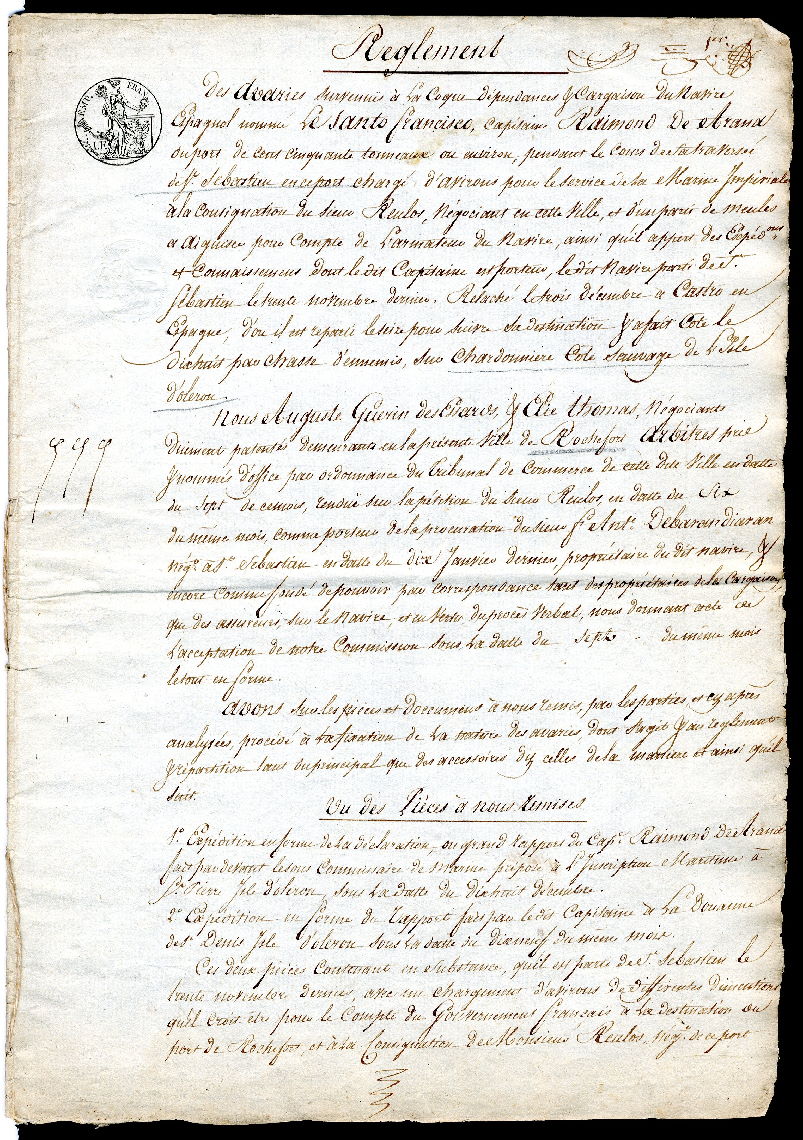 Reglement
des avaries survenues à La Coque dépendances & Cargaison du Navire
Espagnol nommé Le Santo francisco, capitaine Raimond De Arana
du port de cent cinquante tonneaux ou environ, pendant le cours de sa traversée
de St. Sebastien en ce port chargé d'avirons pour le service de La Marine Impériale
à la Consignation du Sieur Reulos, Négociant en cette Ville, et d'un partie de meules
a aiguiser pour Compte de L'armateur du Navire, ainsi qu'il appert des Expéd.ons
et Connaissemens dont le dit Capitaine est porteur, le dit Navire parti de St.
Sébastien le trente novembre dernier. Relaché le trois décembre a Castro en
Espagne, d'ou il est reparti le seize pour suivre sa destination & a fait Cote le
dixhuit par chasse d'ennemis, sur Chardonniere Cote Sauvage de L'Isle
d'oleron.
Nous Auguste Guérin des , & Elie thomas, Négociants
duement patentés demeurants en la présente Ville de Rochefort Arbitres prié
& nommés d'office par ordonnance du Tribunal de Commerce de cette dite Ville en datte
du Sept de ce mois, rendue sur la pétition du Sieur Reulos, en datte du Six
du même mois, comme porteur de la procuration du Sieur Ant.e Debarandiaran
négt. à St. Sebastien en datte du dix Janvier dernier, propriétaire du dit navire, &
encore comme fondé de pouvoir par correspondance tant des propriétaires de la Cargaison
que des assureurs, sur le Navire, et en vertu du procès Verbal, nous donnant acte de
L'acceptation de notre Commission sous La datte du Sept du même mois
le tout en forme.
Avons sur les pièces et documens à nous remis, par les parties, et cy après
analysées, procédé à la fixation de La nature des avaries, dont S'agit & au reglement
& répartition tant du principal que des accessoires d'icelles de la manière et ainsi qu'il
suit.
Vu des Pièces à nous Remises
1°. Expédition en forme de La déclaration, ou grand rapport du Cape. Raimond De Arana
fait par devant le sous Commissaire de marine préposé à L'Inscription Maritime à
St. Pierre Isle d'oleron, sous La datte du dixhuit décembre.
2°. Expédition en forme du rapport fait par le dit Capitaine à La Douanne
de St. Denis Isle d'oleron sous La datte du dixneuf du même mois.
Ces deux pièces Contenant en Substance, qu'il est parti de St. Sebastien le
trente novembre dernier, avec un chargement d'avirons de differentes dimentions
qu'il croit etre pour le Compte du Gouvernement français à La destination du
port de Rochefort, et à La Consignation de Monsieur Reulos, Négt. de ce port